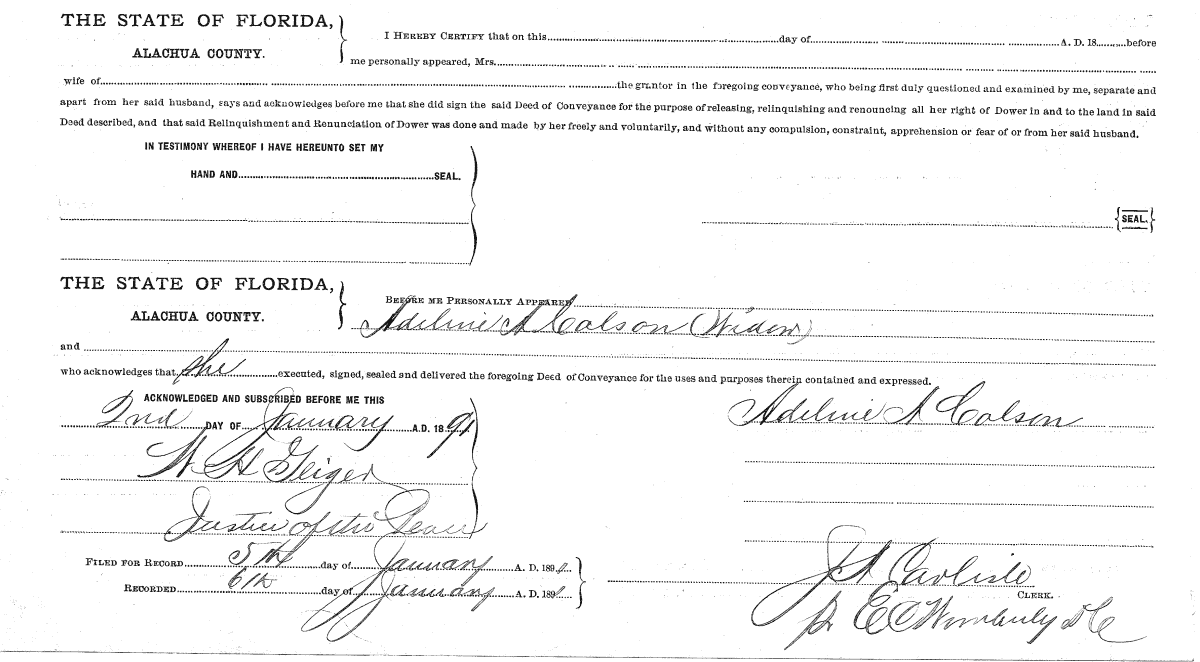 THE STATE OF FLORIDA,
ALACHUA COUNTY.
I HEREBY CERTIFY that on this day of A. D. 18 before
me personally appeared, Mrs.
wife of the grantor in the foregoing conveyance, who being first duly questioned and examined by me, separate and
apart from her said husband, says and acknowledges before me that she did sign the said Deed of Conveyance for the purpose of releasing, relinquishing and renouncing all her right of Dower in and to the land in said
Deed described, and that said Relinquishment and Renunciation of Dower was done and made by her freely and voluntarily, and without any compulsion, constraint, apprehension or fear of or from her said husband.
IN TESTIMONY WHEREOF I HAVE HEREUNTO SET MY
HAND AND SEAL.
SEAL.
THE STATE OF FLORIDA,
ALACHUA COUNTY.
BEFORE ME PERSONALLY APPEARED
Adeline A Colson (Widow)
and
who acknowledges that she executed, signed, sealed and delivered the foregoing Deed of Conveyance for the uses and purposes therein contained and expressed.
ACKNOWLEDGED AND SUBSCRIBED BEFORE ME THIS
2nd DAY OF January A.D. 1891
Adeline A Colson
W H Geiger
Justice of the Peace
FILED FOR RECORD 5th day of January A. D. 1891
RECORDED 6th day of January A. D. 1891
J A Carlisle
CLERK.
pr E C Wimberly D C